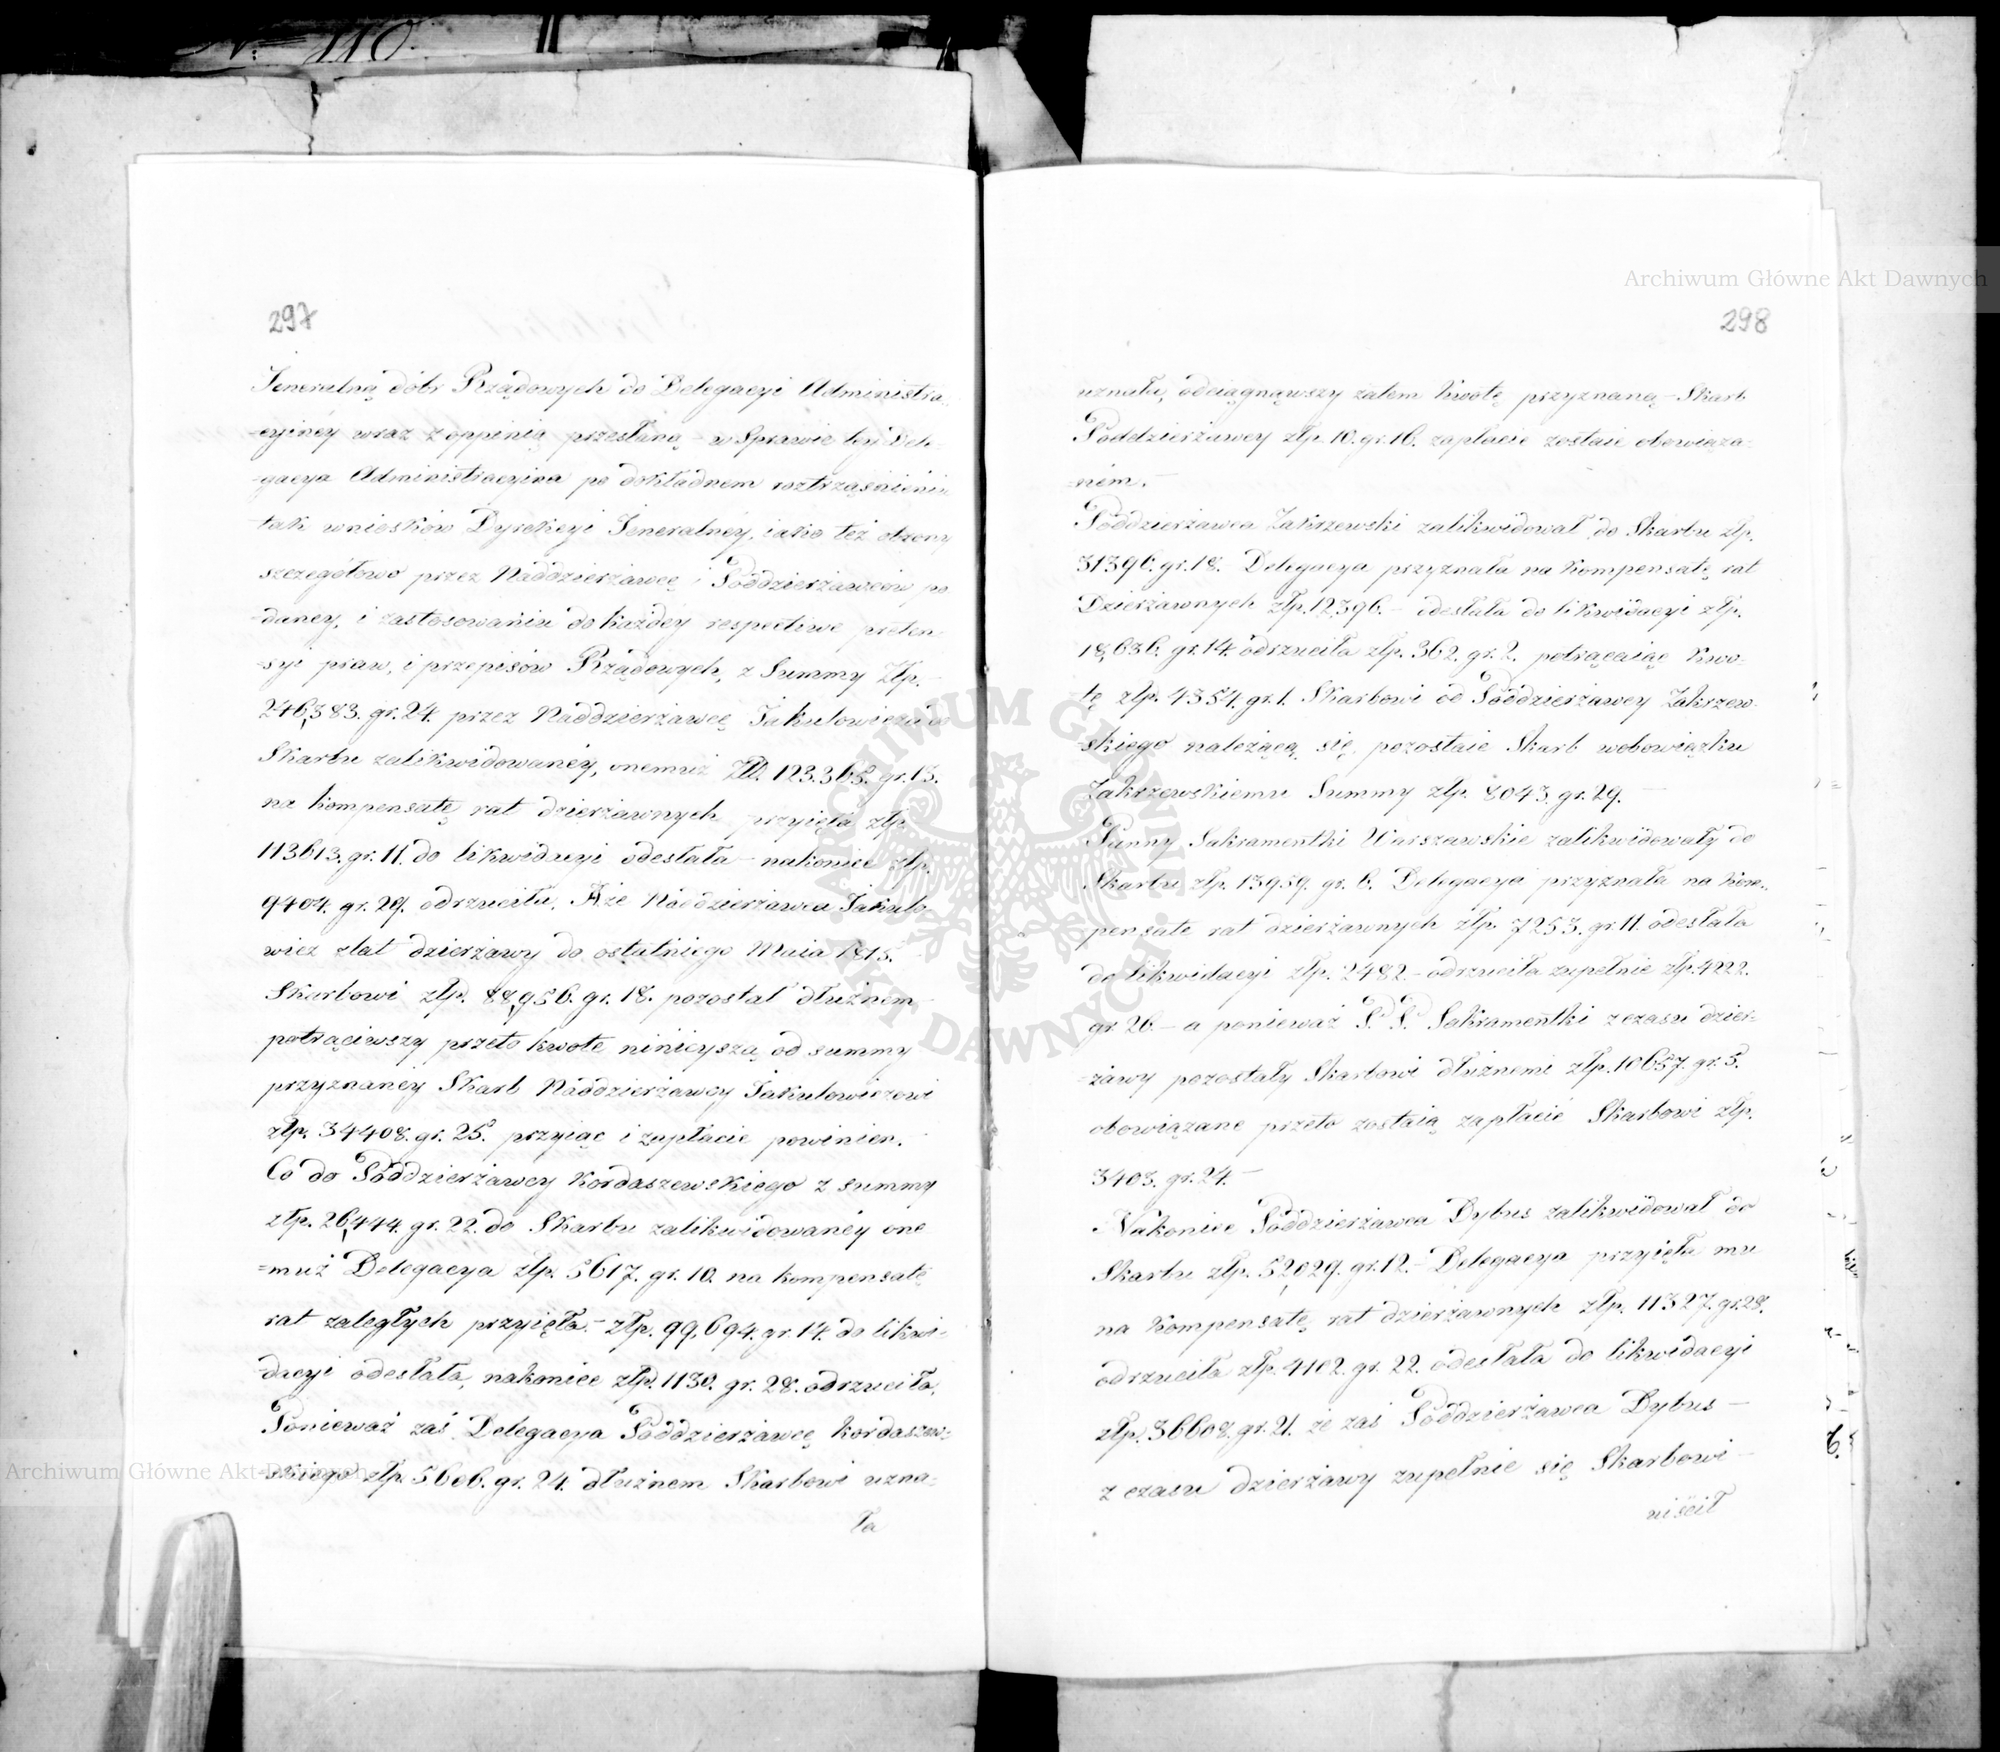 № 110.
297
Jeneralną dóbr Rządowych do Delegacyi Administra-
-cyinéy wraz z oppinią przesłaną – w Sprawie téy Dele-
-gacya Administracyina po dokładnem roztrząśnieniu
tak wniosków Dyrekcyi Jeneralnéy, iako też obrony
szczegółowo przez Naddzierżawcę i Poddzierżawców po
-daney, i zastosowaniu do każdey respective preten-
-syi praw, i przepisów Rządowych, z Summy Złp.
246,383. gr. 24. przez Naddzierżawcę Jakulowicza do
Skarbu zalikwidowanéy, onemuż Złp. 123.365. gr. 13.
na kompensatę rat dzierżawnych przyięła złp.
113613. gr. 11. do likwidacyi odesłała – nakoniec złp.
9404. gr. 29. odrzuciła. A że Naddzierżawca Jakulo-
wicz z lat dzierżawy do ostatniego Maia 1815.
Skarbowi złp. 88,956. gr. 18. pozostał dłużnem –
potrąciwszy przeto kwotę ninieyszą od summy
przyznanéy Skarb Naddzierżawcy Jakulowiczowi
złp. 34408. gr. 25. przyiąć i zapłacić powinien.
Co do Poddzierżawcy Kordaszewskiego z summy
złp. 26,444. gr. 22. do Skarbu zalikwidowanéy one
=muż Delegacya złp. 5617. gr. 10. na kompensatę
rat zaległych przyięła – złp. 99,694. gr. 14. do likwi-
-dacyi odesłała, nakoniec złp. 1130. gr. 28. odrzuciła.
Ponieważ zaś Delegacya Poddzierżawcę Kordaszew-
-skiego złp. 5606. gr. 24. dłużnem Skarbowi uzna-
ła
298
uznała, odciągnąwszy zatem kwotę przyznaną – Skarb
Poddzierżawcy złp. 10. gr. 16. zapłacić zostaie obowiąza-
=nem.
Poddzierżawca Zakrzewski zalikwidował do Skarbu złp.
31396. gr. 18. Delegacya przyznała na kompensatę rat
Dzierżawnych złp. 12396. – odesłała do likwidacyi złp.
18,636. gr. 14. odrzuciła złp. 362. gr. 2. potrącaiąc kwo-
tę złp. 4354. gr. 1. Skarbowi od Poddzierżawcy Zakrzew-
-skiego należącą się, pozostaie Skarb w obowiązku
Zakrzewskiemu Summy złp. 8043. gr. 29.
Panny Sakramentki Warszawskie zalikwidowały do
Skarbu złp. 13959. gr. 6. Delegacya przyznała na kom-
pensatę rat dzierżawnych złp. 7253. gr. 11. odesłała
do likwidacyi złp. 2482. – odrzuciła zupełnie złp. 4222.
gr. 26. – a ponieważ P. P. Sakramentki z czasu dzier-
-żawy pozostały Skarbowi dłużnemi złp. 10657. gr. 5.
obowiązane przeto zostaią zapłacić Skarbowi złp.
3403. gr. 24. –
Nakoniec Poddzierżawca Dybus zalikwidował do
Skarbu złp. 52,029. gr. 12. – Delegacya przyięła mu
na kompensatę rat dzierżawnych złp. 11327. gr. 28.
odrzuciła złp. 4102. gr. 22. odesłała do likwidacyi
złp. 36608. gr. 21. że zaś Poddzierżawca Dybus –
z czasu dzierżawy zupełnie się Skarbowi –
uiścił
Archiwum Główne Akt Dawnych
Archiwum Główne Akt Dawnych
ARCHIWUM GŁÓWNE AKT DAWNYCH